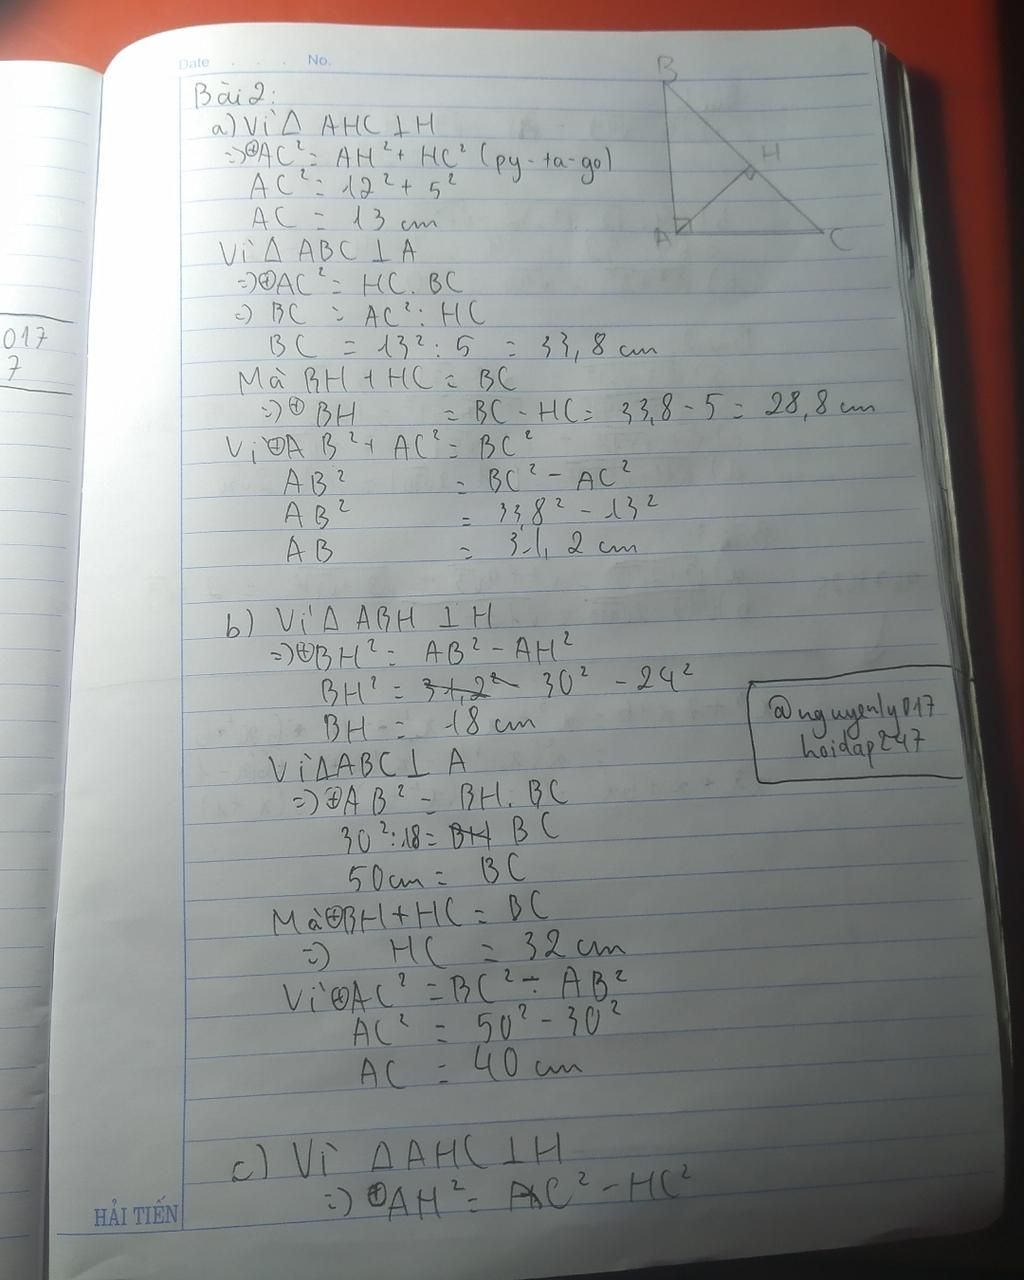 Date . . . . No.
Bài 2:
a) Vì Δ AHC ⊥ H
=> ⊕ AC² = AH² + HC² (py-ta-go)
AC² = 12² + 5²
AC = 13 cm
Vì Δ ABC ⊥ A
=> ⊕ AC² = HC. BC
=> BC = AC² : HC
BC = 13² : 5 = 33,8 cm
Mà BH + HC = BC
=> ⊕ BH = BC - HC = 33,8 - 5 = 28,8 cm
Vì ⊕ AB² + AC² = BC²
AB² = BC² - AC²
AB² = 33,8² - 13²
AB = 31,2 cm
b) Vì Δ ABH ⊥ H
=> ⊕ BH² = AB² - AH²
BH² = 31,2² 30² - 24²
BH = 18 cm
Vì Δ ABC ⊥ A
=> ⊕ AB² = BH. BC
30² : 18 = BH BC
50 cm = BC
Mà ⊕ BH + HC = BC
=> HC = 32 cm
Vì ⊕ AC² = BC² - AB²
AC² = 50² - 30²
AC = 40 cm
c) Vì Δ AHC ⊥ H
=> ⊕ AH² = AC² - HC²
B
H
A
C
@nguyenly017
hoidap247
017
7
HẢI TIẾN